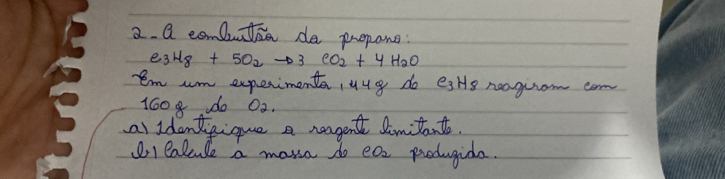 2-A combustão da propano:
C3H8 + 5O2 → 3 CO2 + 4 H2O
Em um experimento, 44g de C3H8 reagiram com
160g de O2.
a) Identifique o reagente limitante.
b) Calcule a massa de CO2 produzida.